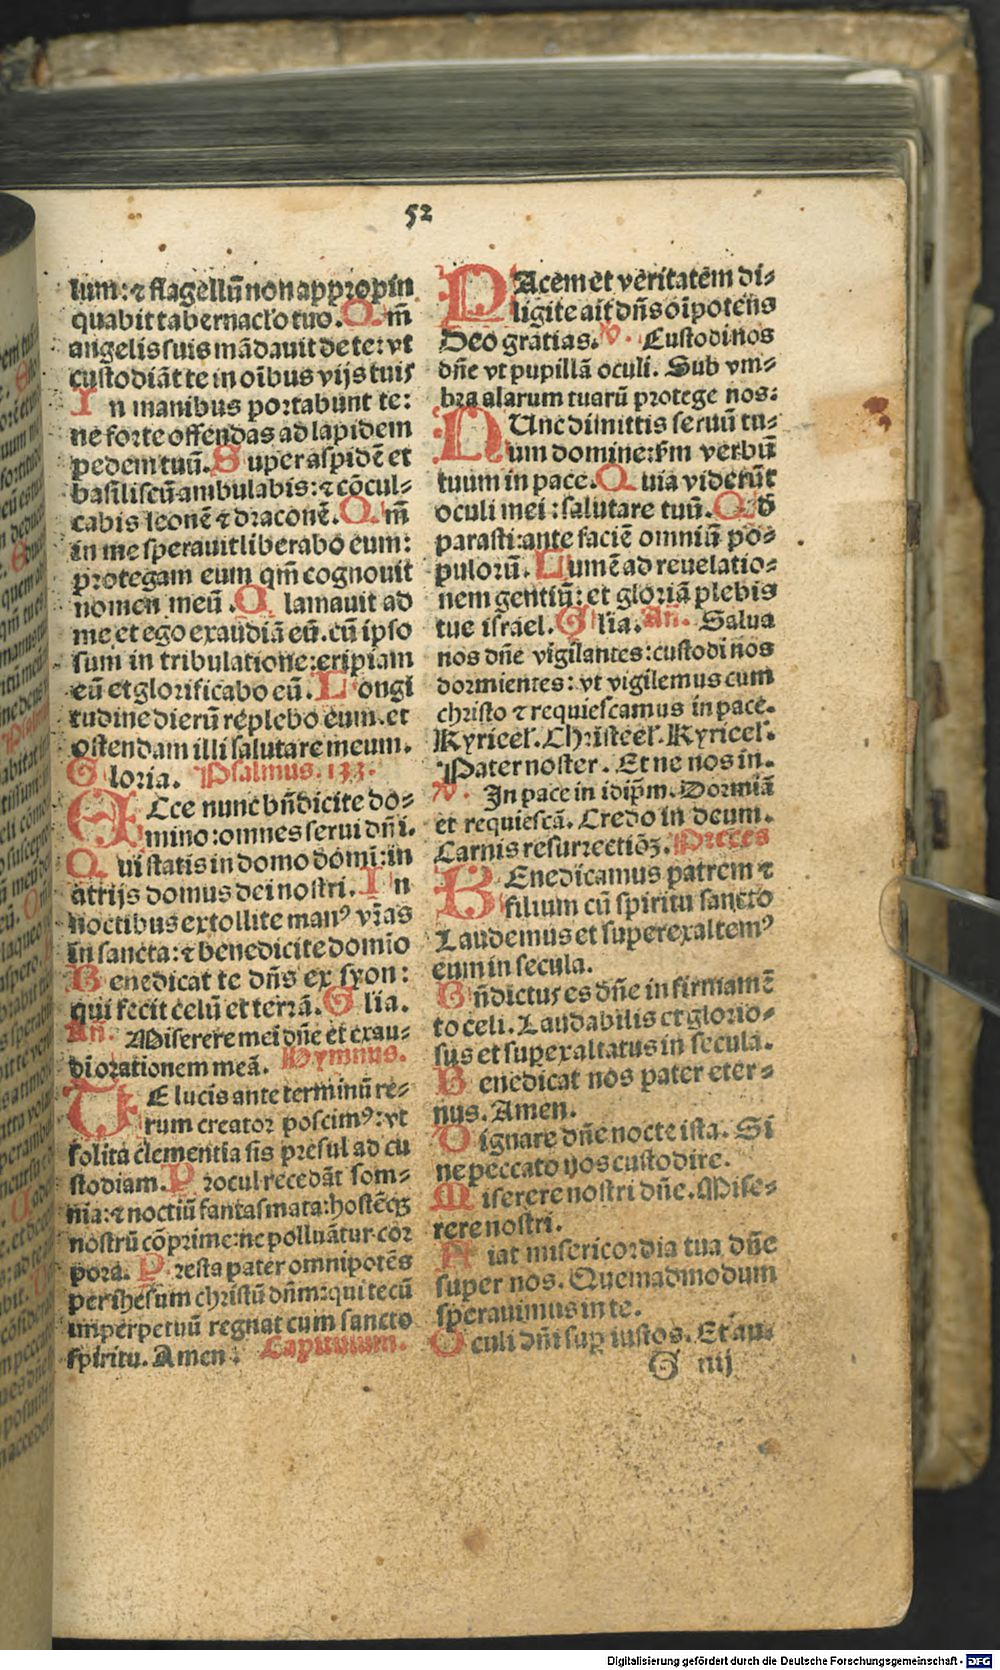 52
lum: ⁊ flagellū non appropin
quabit tabernac̄lo tuo. Qm̄
angelis suis mādauit de te: vt
custodiāt te in oībus vijs tuis
In manibus portabunt te:
ne forte offendas ad lapidem
pedem tuū. Super aspidē et
basiliscū ambulabis: ⁊ cōcul⸗
cabis leonē ⁊ draconē. Qm̄
in me sperauit liberabo eum:
protegam eum qm̄ cognouit
nomen meū. Clamauit ad
me et ego exaudiā eū. cū ipso
sum in tribulatione: eripiam
eū et glorificabo eū. Longi
tudine dierū replebo eum. et
ostendam illi salutare meum.
Gloria. Psalmus. 133.
ECce nunc bn̄dicite do⸗
mino: omnes serui dn̄i.
Qui statis in domo domī: in
atrijs domus dei nostri. In
noctibus extollite manꝰ vr̄as
in sancta: ⁊ benedicite domio
Benedicat te dn̄s ex syon:
qui fecit celū et terrā. Glia.
An̄. Miserere mei dn̄e et exau⸗
di orationem meā. Hymnus.
TE lucis ante terminū re⸗
rum creator poscimꝰ: vt
solita clementia sis presul ad cu
stodiam. Procul recedāt som⸗
nia: ⁊ noctiū fantasmata: hostēqꝫ
nostrū cōprime: ne polluātur cor
pora. Presta pater omnipotēs
per ihesum christū dn̄m: qui tecū
imperpetuū regnat cum sancto
spiritu. Amen. Capitulum.
PAcem et veritatem di⸗
ligite ait dn̄s oīpotens
Deo gratias. ℣. Custodi nos
dn̄e vt pupillā oculi. Sub vm⸗
bra alarum tuarū protege nos:
NUnc dimittis seruū tu⸗
um domine: s̄m verbū
tuum in pace. Quia viderūt
oculi mei: salutare tuū. Qd̄
parasti: ante faciē omniū po⸗
pulorū. Lumē ad reuelatio⸗
nem gentiū: et gloriā plebis
tue israel. Glia. An̄. Salua
nos dn̄e vigilantes: custodi nos
dormientes: vt vigilemus cum
christo ⁊ requiescamus in pace.
Kyrieel̄. Christeel̄. Kyrieel̄.
Pater noster. Et ne nos in.
℣. In pace in idip̄m. Dormiā
et requiescā. Credo in deum.
Carnis resurrectiōꝫ. Preces
BEnedicamus patrem ⁊
filium cū spiritu sancto
Laudemus et superexaltemꝰ
eum in secula.
Bn̄dictus es dn̄e in firmamē
to celi. Laudabilis et glorio⸗
sus et superexaltatus in secula.
Benedicat nos pater eter⸗
nus. Amen.
Dignare dn̄e nocte ista. Si
ne peccato nos custodire.
Miserere nostri dn̄e. Mise⸗
rere nostri.
Fiat misericordia tua dn̄e
super nos. Quemadmodum
sperauimus in te.
Oculi dn̄i sup̄ iustos. Et au⸗
G iiij
Digitalisierung gefördert durch die Deutsche Forschungsgemeinschaft - DFG